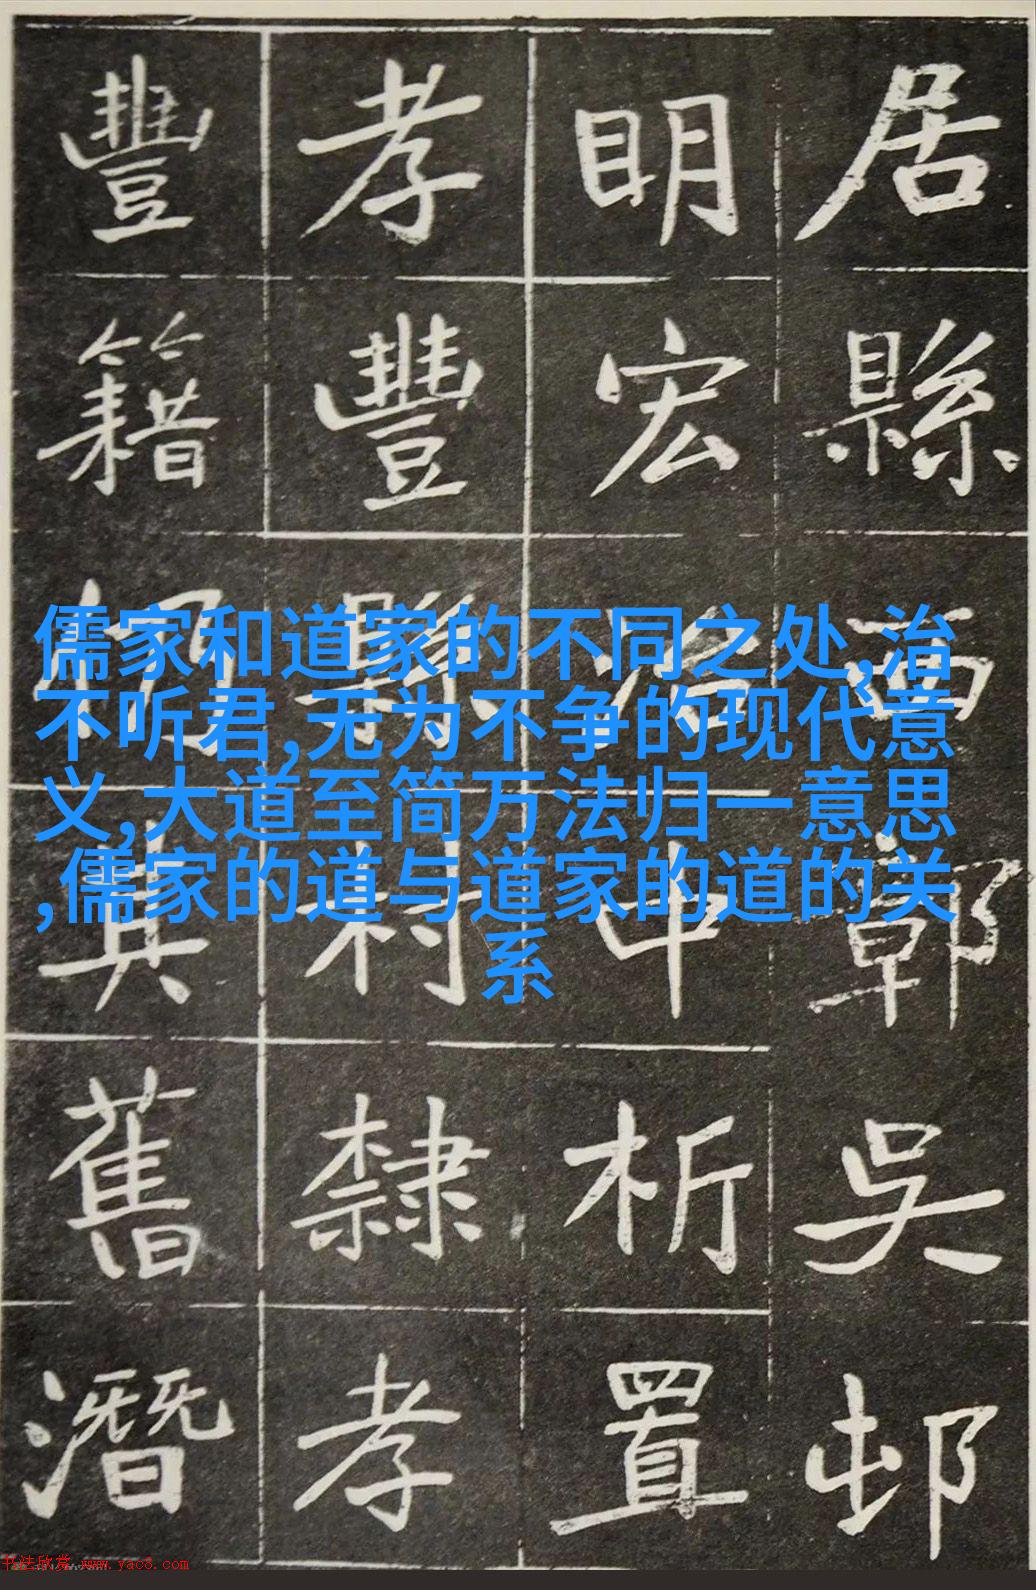 儒家和道家的不同之处,治
不听君,无为不争的现代意
义,大道至简万法归一意思
,儒家的道与道家的道的关
系
居縣西鄣吳邨
明宏治中析置
孝豐縣村隸孝
豐籍其舊潛
书法欣赏 www.yac8.com